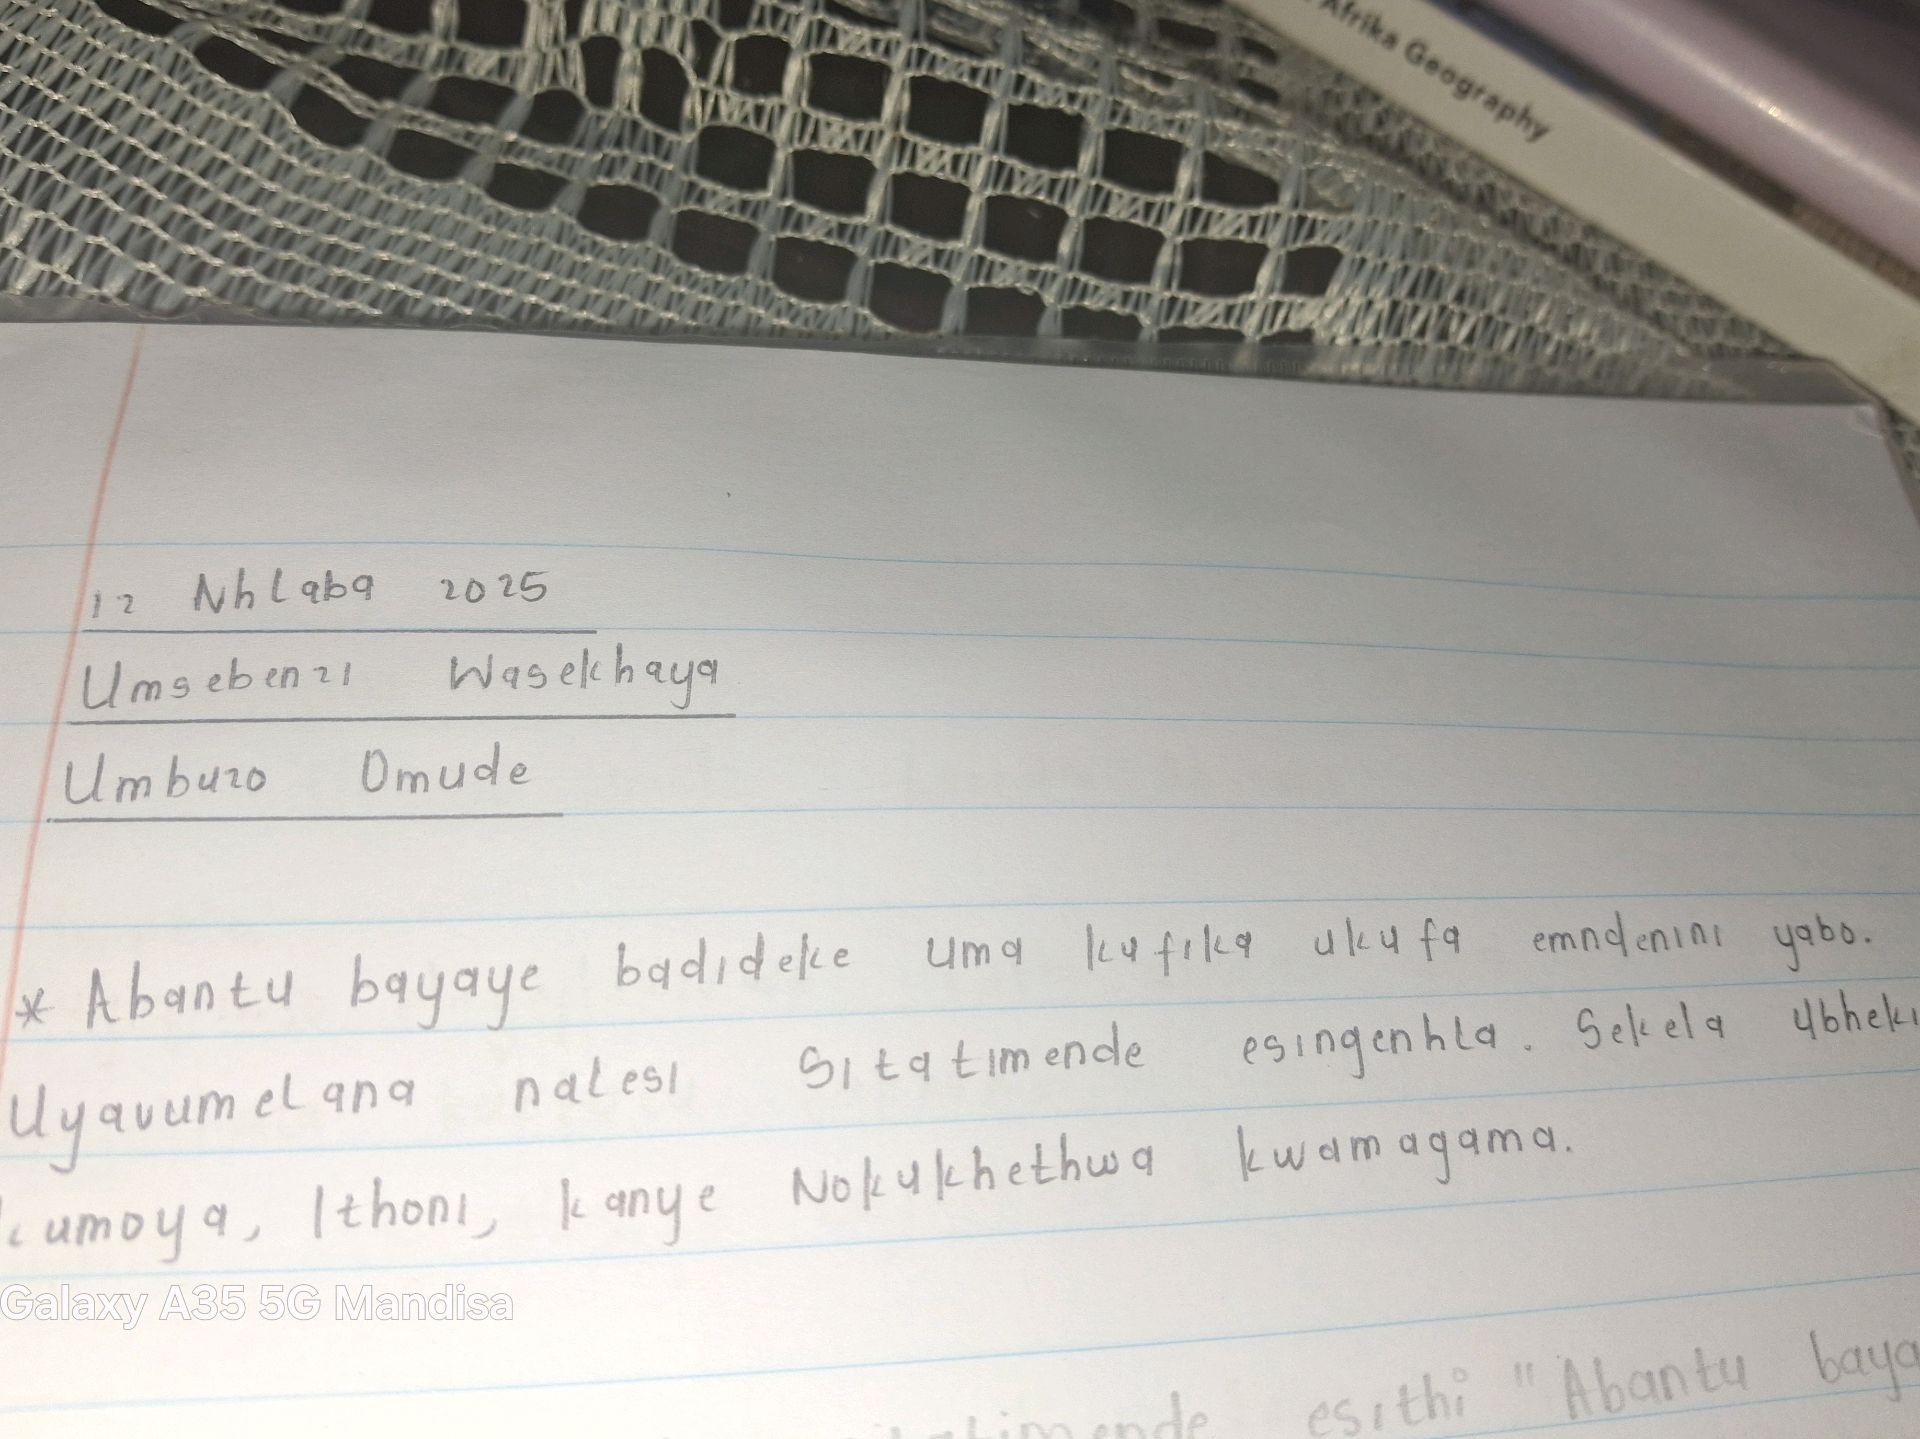 Afrika Geography
12 Nhlaba 2025
Umsebenzi Wasekhaya
Umbuzo Omude
* Abantu bayaye badideke uma kufika ukufa emndenini yabo.
Uyavumelana nalesi Sitatimende esingenhla. Sekela ubheki
kumoya, Ithoni, kanye Nokukhethwa kwamagama.
Galaxy A35 5G Mandisa
esithi "Abantu baya